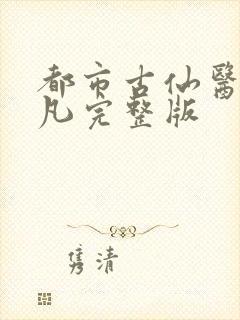 都市古仙醫
凡完整版
隽清